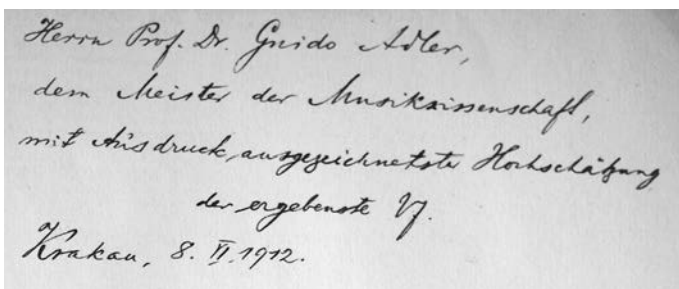 Herrn Prof. Dr. Guido Adler,
dem Meister der Musikwissenschaft,
mit Ausdruck ausgezeichnetster Hochschätzung
der ergebenste Vf.
Krakau, 8. II. 1912.